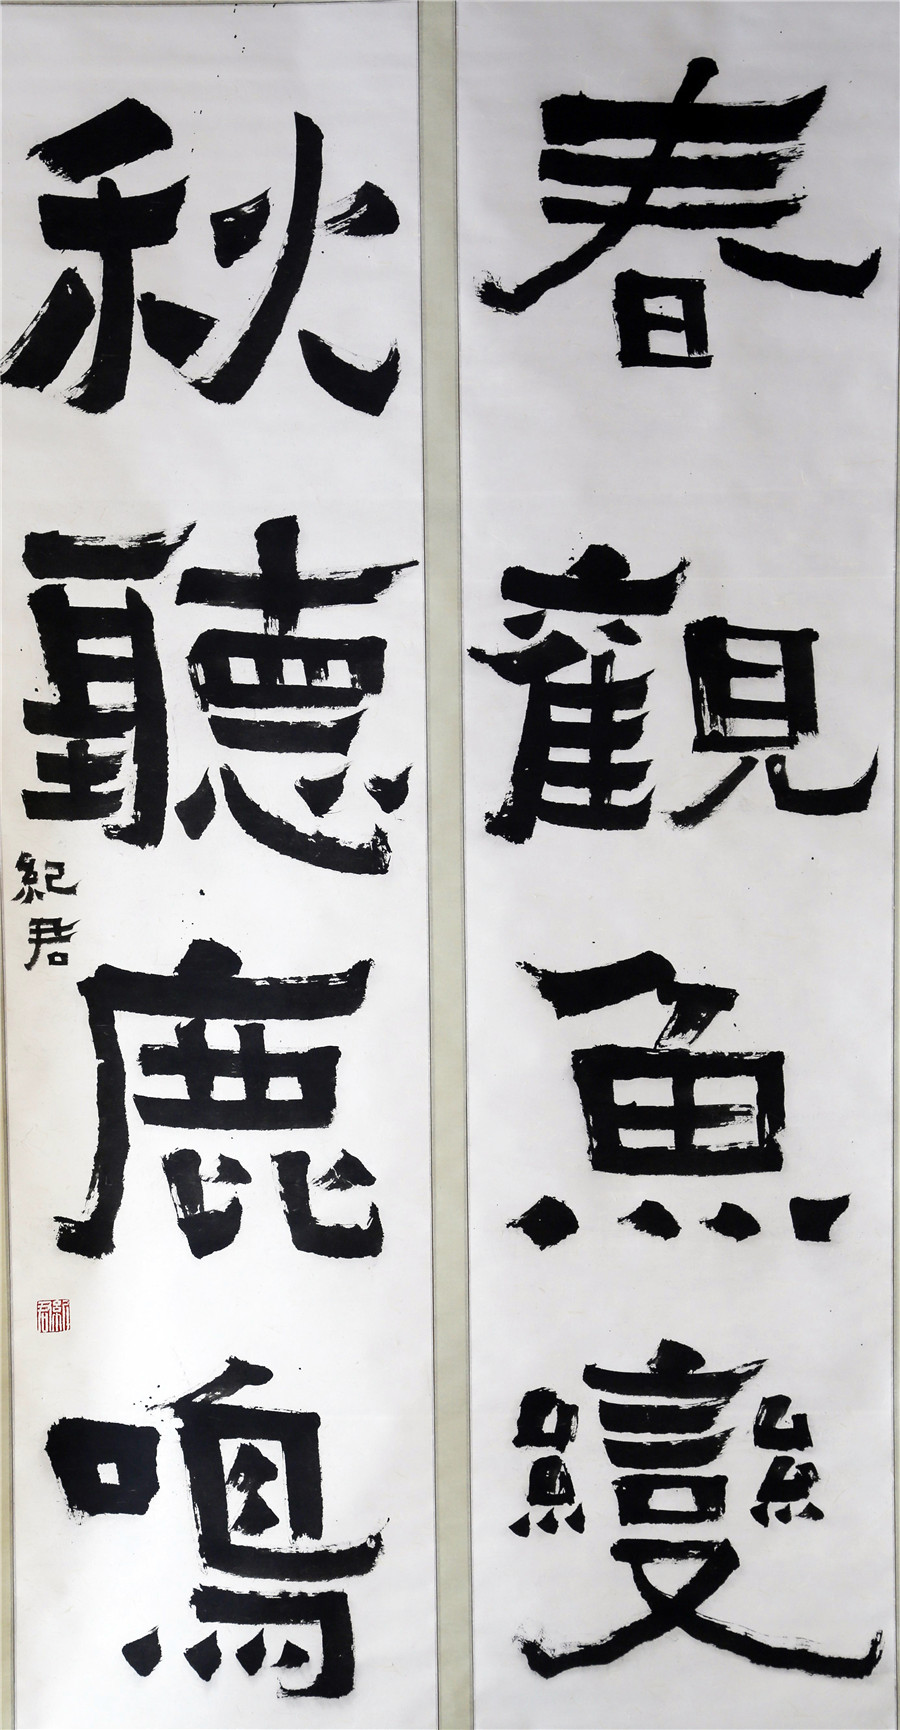 春觀魚變
秋聽鹿鳴
紀君